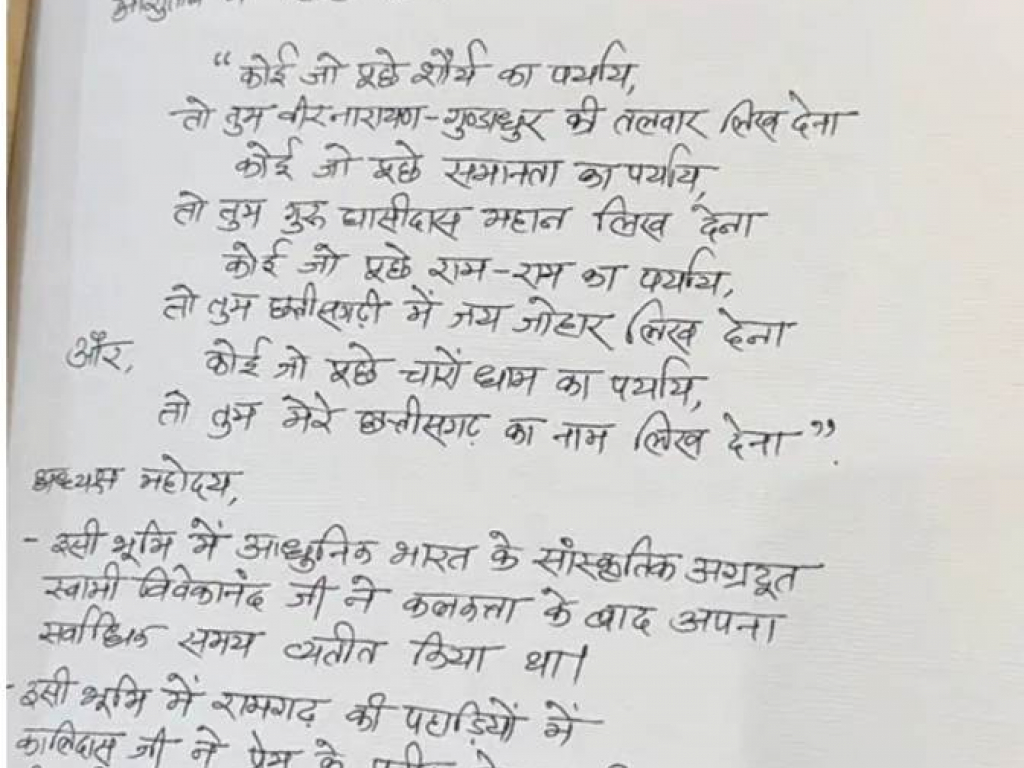 “कोई जो पूछे शौर्य का पर्याय,
तो तुम वीरनारायण-गुण्डाधुर की तलवार लिख देना
कोई जो पूछे समानता का पर्याय,
तो तुम गुरु घासीदास महान लिख देना
कोई जो पूछे राम-राम का पर्याय,
तो तुम छत्तीसगढ़ी में जय जोहार लिख देना
और, कोई जो पूछे चारों धाम का पर्याय,
तो तुम मेरे छत्तीसगढ़ का नाम लिख देना”.
अध्यक्ष महोदय,
- इसी भूमि में आधुनिक भारत के सांस्कृतिक अग्रदूत
स्वामी विवेकानंद जी ने कलकत्ता के बाद अपना
सर्वाधिक समय व्यतीत किया था।
- इसी भूमि में रामगढ़ की पहाड़ियों में
कालिदास जी ने प्रेम के